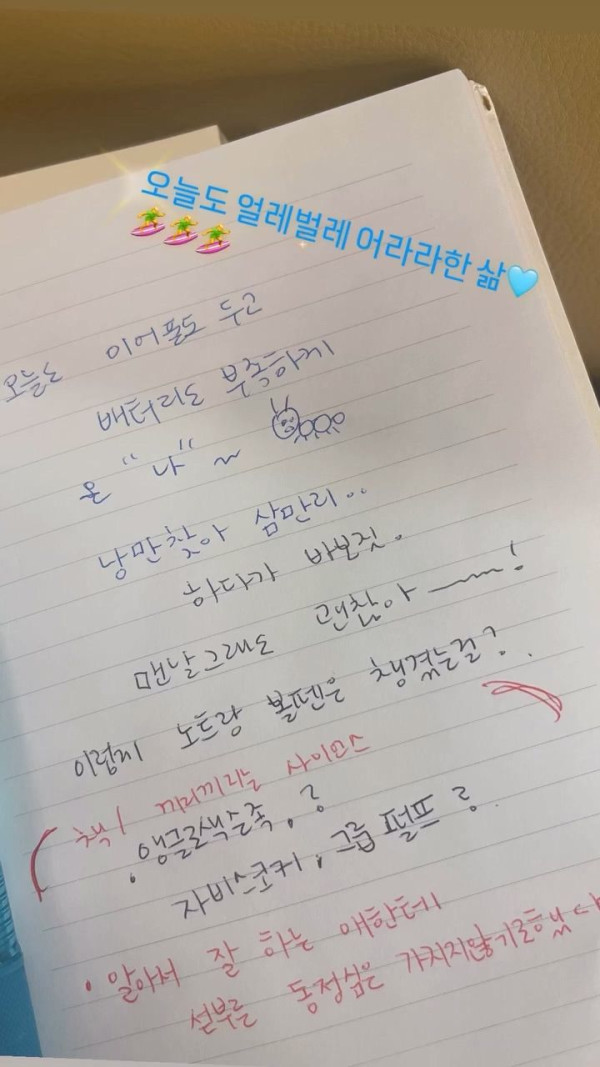 오늘도 얼레벌레 어라라한 삶
오늘도 이어폰도 두고
배터리도 부족하게
온 "나" ~
낭만찾아 삼만리..
하다가 바보짓.
맨날그래도 괜찮아 ~!
이렇게 노트랑 볼펜은 챙겼는걸?.
책 / 끼리끼리는 사이언스
·앵글로색슨족, ?
자비스코커, 그룹 펄프 ?.
· 알아서 잘 하는 애한테
섣부른 동정심은 가지지않기로했다